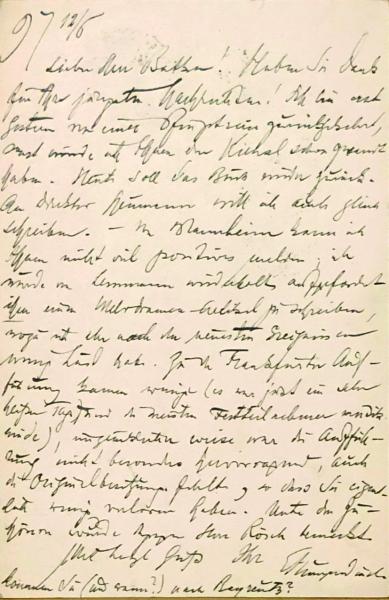 97 12/6
Lieber Herr Batka! Haben Sie Dank
für Ihre Nachrichten! Ich bin erst
gestern von einer Pfingstreise zurückgekehrt,
sonst würde ich Ihnen den schon gesandt
haben. Heute soll das Buch wieder zurück.
An Direktor Neumann will ich auch gleich
schreiben. — In Mannheim kann ich
Ihnen nicht viel positives melden; ich
wurde von Lessmann wiederholt aufgefordert
ihm einen Melodramen-Artikel zu schreiben,
wozu ich aber nach den neuesten Ereignissen
wenig Lust habe. Zu der Frankfurter Auf-
führung kamen wenige (es war jetzt ein sehr
heißer Tag und die meisten Festteilnehmer
müde), war die Auffüh-
rung nicht besonders hervorragend, auch
die Originalbesetzung fehlte, so dass Sie eigent-
lich wenig verloren haben. Unter den Zu-
hörern wurde Herr Rösch bemerkt
Mit herzl. Gruß Ihr Humperdinck
Kommen Sie (und wann?) nach Bayreuth?